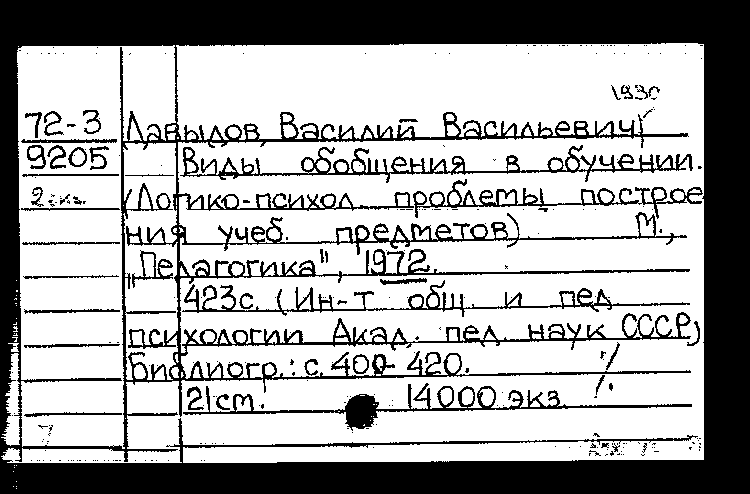 1930
72-3 Давыдов, Василий Васильевич
9205 Виды обобщения в обучении.
2 экз. (Логико-психол. проблемы построе
ния учеб. предметов) М.,
„Педагогика", 1972.
423с. (Ин-т общ. и пед.
психологии Акад. пед. наук СССР)
Библиогр.: с. 400-420.
21см. 14000 экз.
7